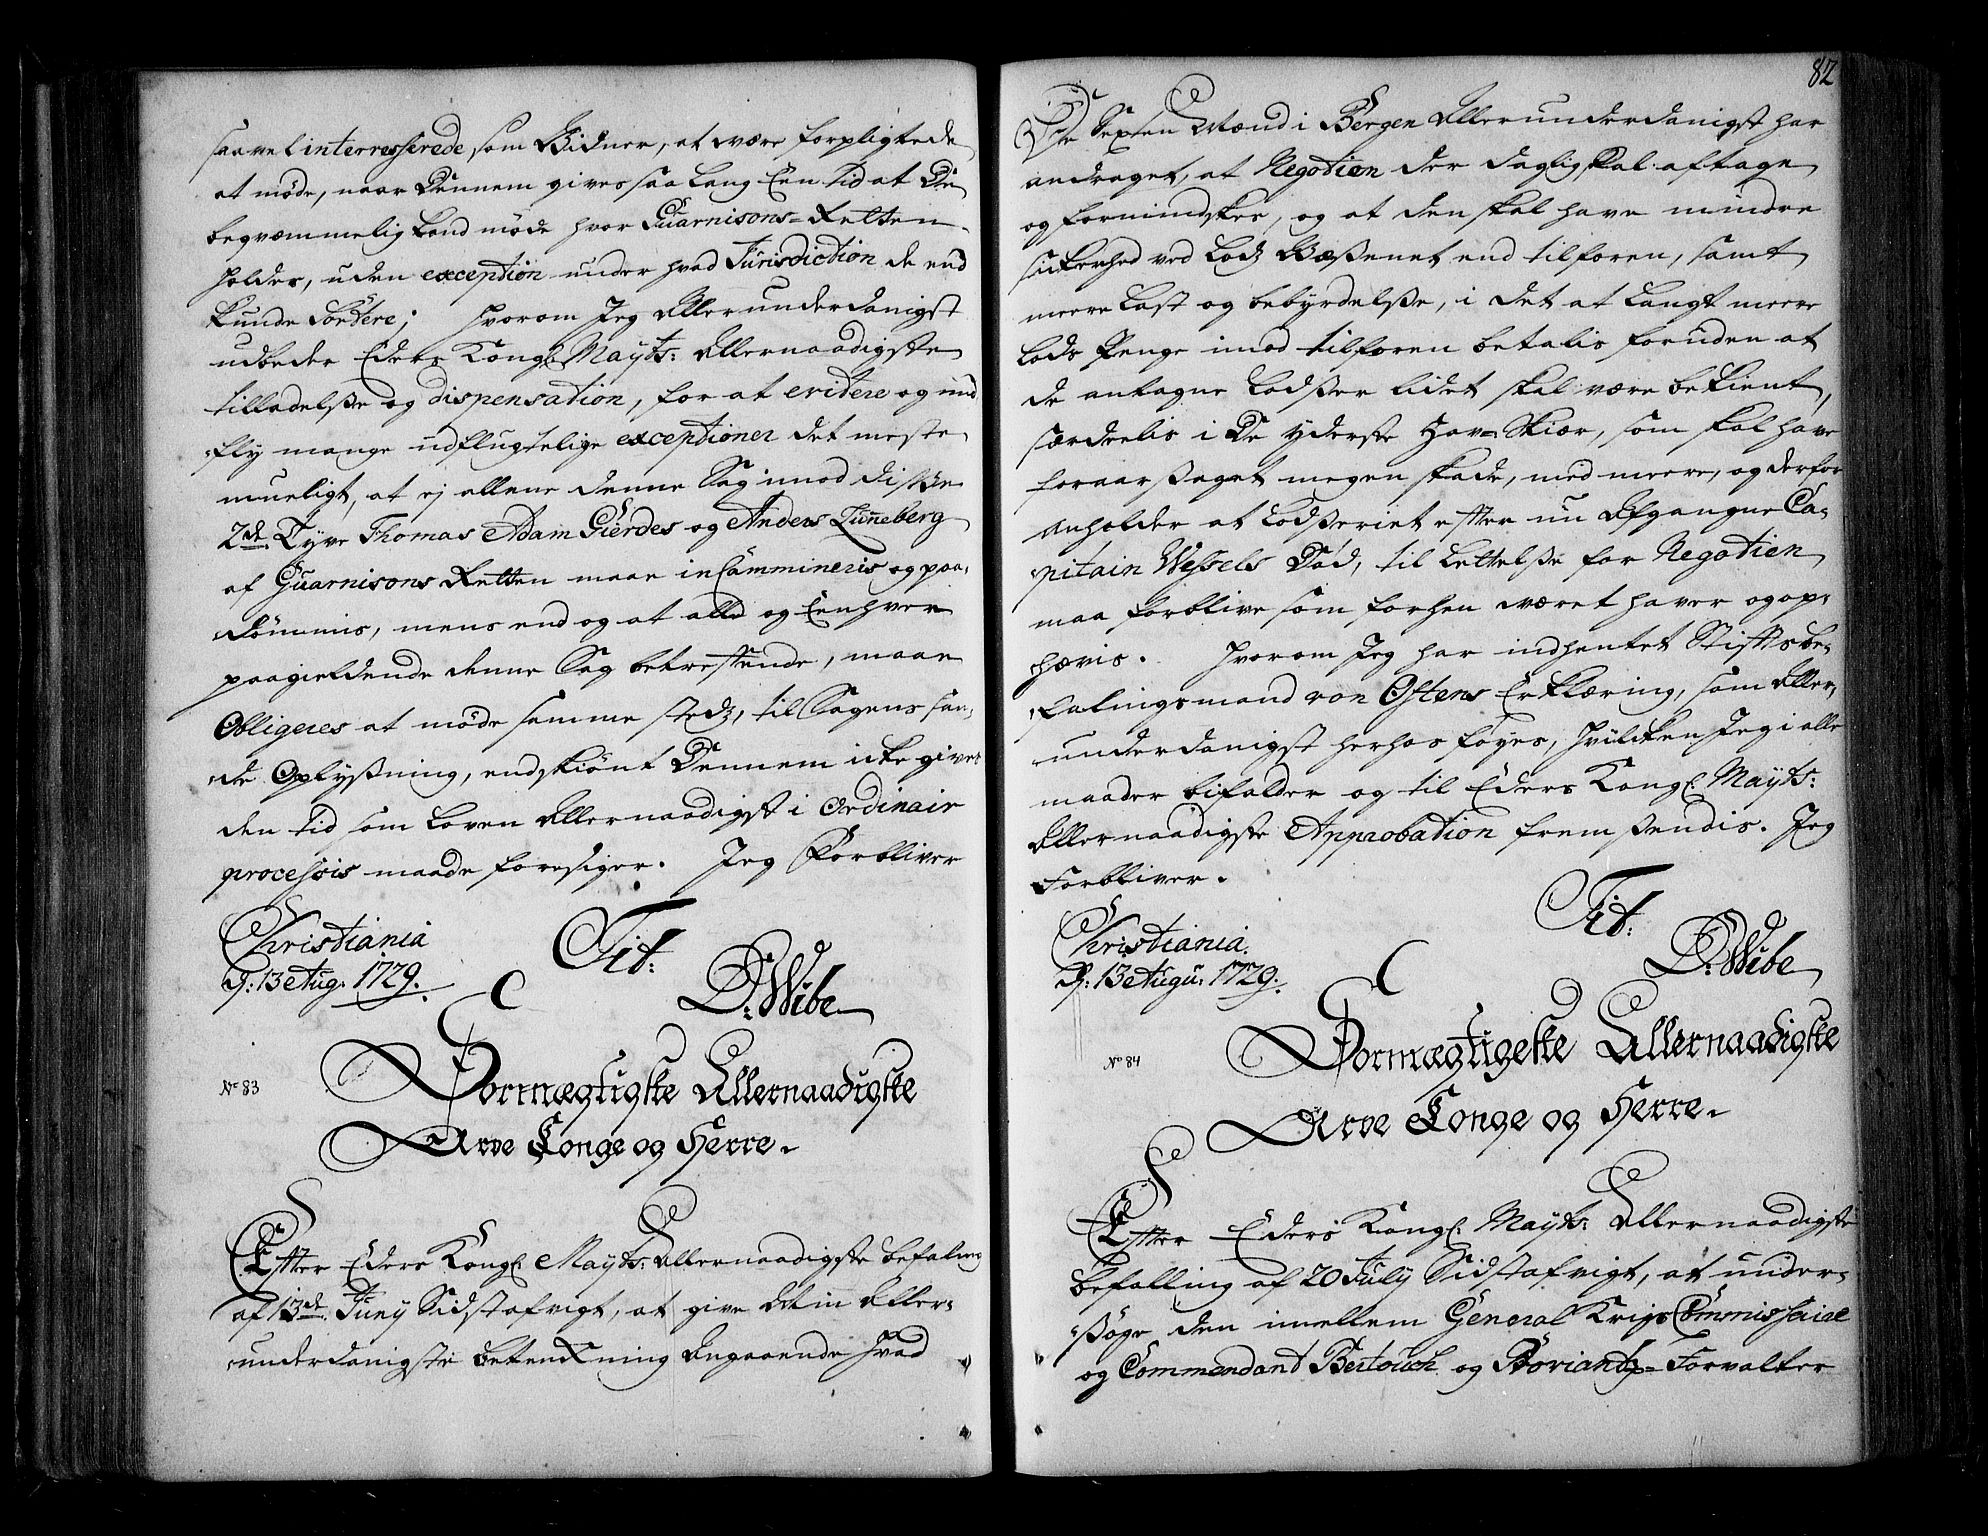 saavel interresserede som Vidner, at være forpligtede
at møde, naar Dennem gives saa lang Een tid at De
beqvæmmelig kand møde hvor Guarnisons-Retten
holdes, uden exception under hvad Jurisdiction de end
kunde Sortere; hvorom Jeg Allerunderdanigst
udbeder Eders Kongl. Mayts: Allernaadigste
tilladelsse og dispensation, for at evitere og und
fly mange udflugtelige exceptioner det meste
mueligt, at ej allene denne Sag imod disse
2de Tyve Thomas Adam Gierdes og Anders Lunneberg
af Guarnisons Retten maae in Commineris og paa-
dømmis, mens end og at alle og Eenhver
paagieldende denne Sag betreffende, maae
Obligeres at møde samme stedz, til Sagens san-
de Oplyssning, endskiønt Dennem icke gives
den tid som Loven Allernaadigst i Ordinair
processis maade foresiger. Jeg Forbliver
Christiania
d: 13 Aug. 1729.
Tit:
D: Wibe
No 83
Stormægtigste Allernaadigste
Arve Konge og Herre.
Efter Eders Kongl. Mayts: Allernaadigste befaling
af 13de Juny Sidstafvigt, at give det in Aller-
underdanigste betenkning Angaaende hvad
82
De Sexten Mænd i Bergen Allerunderdanigst har
andraget, at Negotien der daglig skal aftage
og formindskes, og at den skal have mindre
sickerhed ved Lodz Væssenet end tilforen, samt
meere Last og bebyrdelsse, i det at langt meere
Lods Penge imod tilforen betalis foruden at
de antagne Lodsser lidet skal være bekient,
særdeelis i De yderste Hav-Skiær, som skal have
foraarssaget megen skade, med meere, og derfor
anholder at Lodsseriet efter nu Afgangne Ca-
pitain Wessels Død, til Lettelsse for Negotien
maa forblive som forhen været haver og op-
hævis. Hvorom Jeg har indhentet Stiftsbe-
falingsmand von Ostens Erklæring, som Aller-
underdanigst herhos føyes, hvilcken Jeg i alle
maader bifalder og til Eders Kongl. Mayts:
Allernaadigste Approbation fremssendis. Jeg
Forbliver.
Tit:
Christiania.
d: 13 Augu: 1729.
D: Wibe
No 84
Stormægtigste Allernaadigste
Arve Konge og Herre.
Efter Eders Kongl. Mayts: Allernaadigste
befalling af 20 July Sidstafvigt, at under-
ssøge den imellem General Krigs Commissaire
og Commendant Bertouch og Proviantz-Forvalter